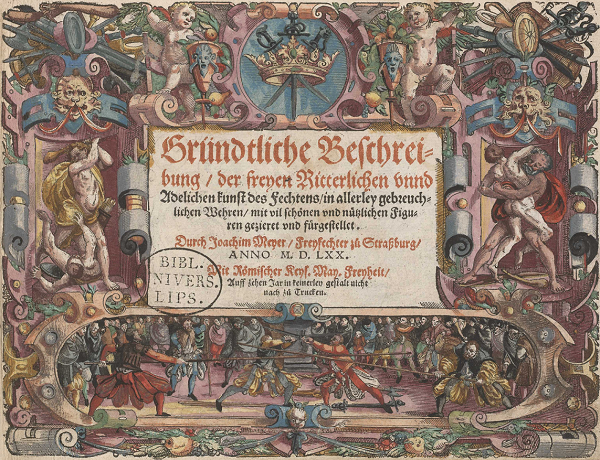 Gründtliche Beschrei-
bung / der freyen Ritterlichen vnnd
Adelichen kunst des Fechtens / in allerley gebreuch-
lichen Wehren / mit vil schönen vnd nützlichen Figu-
ren gezieret vnd fürgestellet.
Durch Joachim Meyer / Freyfechter zů Straßburg /
ANNO M. D. LXX.
Mit Römischer Keys. May. Freyheit /
Auff zehen Jar in keinerley gestalt nicht
nach zů Trucken.
BIBL.
NIVERS.
LIPS.